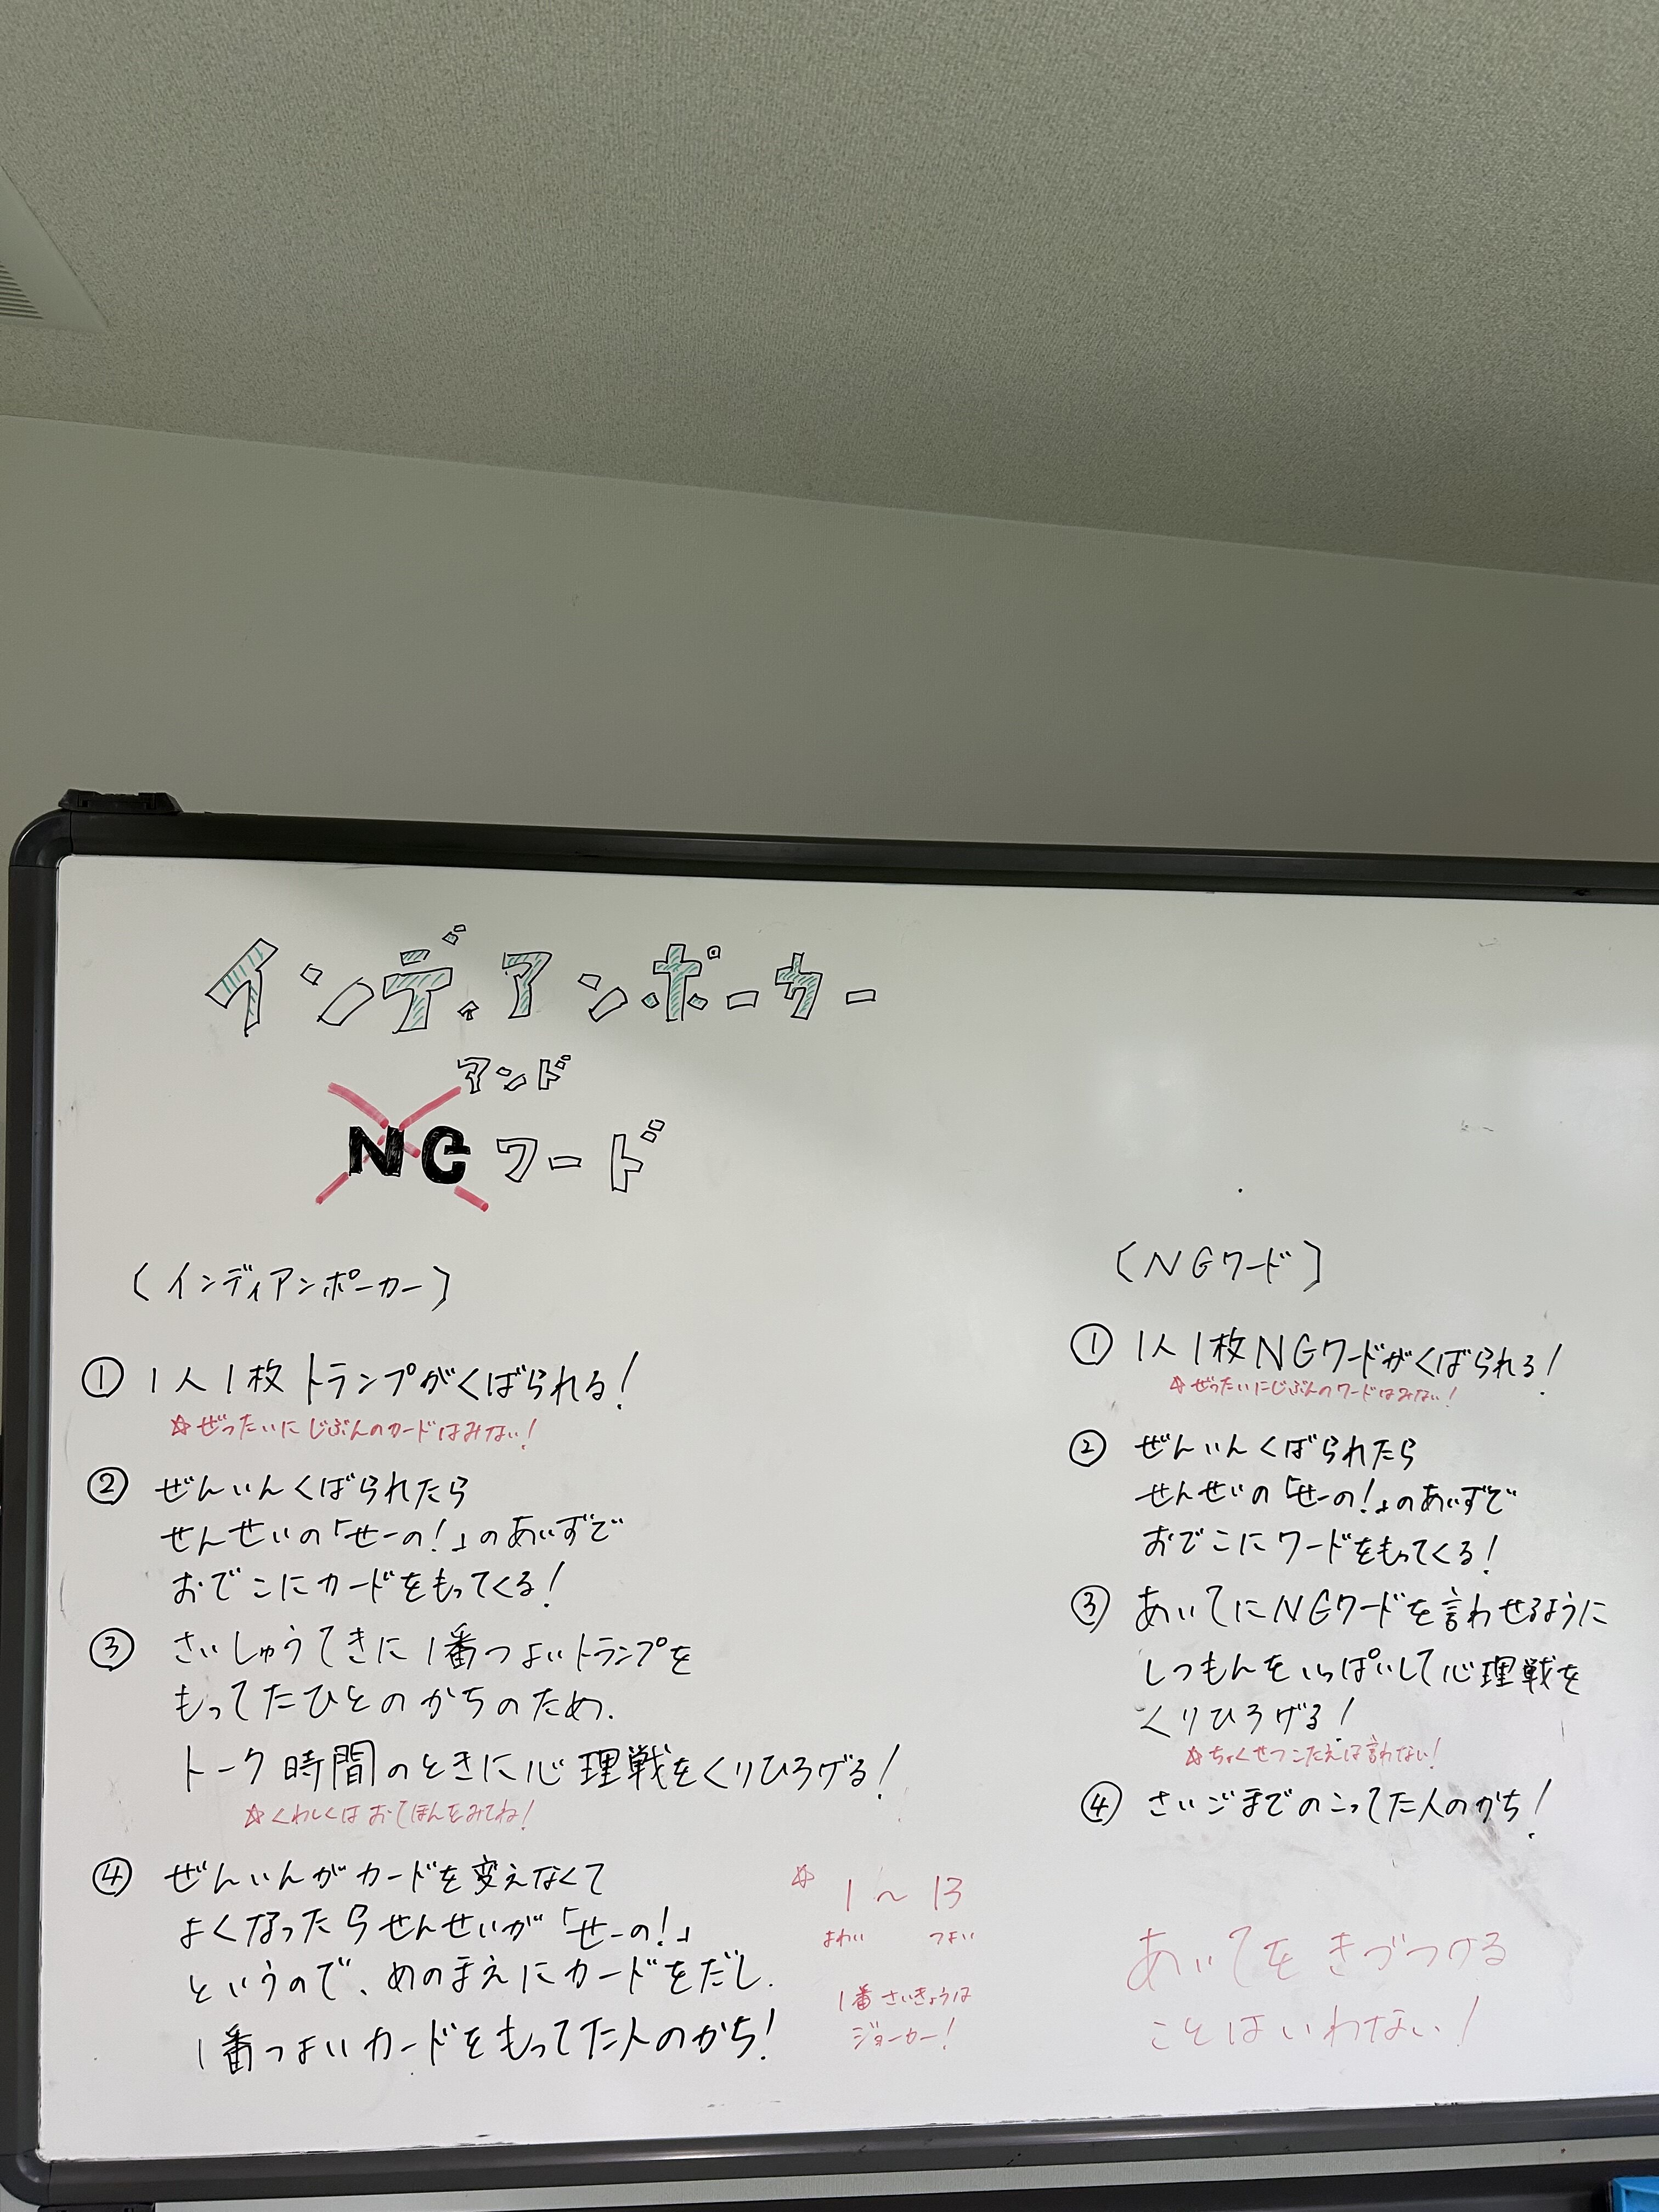 インディアンポーカー
アンド
NGワード
〔インディアンポーカー〕
① 1人1枚トランプがくばられる!
☆ぜったいにじぶんのカードはみない!
② ぜんいんくばられたら
せんせいの「せーの!」のあいずで
おでこにカードをもってくる!
③ さいしゅうてきに1番つよいトランプを
もってたひとのかちのため.
トーク時間のときに心理戦をくりひろげる!
☆くわしくはおてほんをみてね!
④ ぜんいんがカードを変えなくて
よくなったらせんせいが「せーの!」
というので、めのまえにカードをだし.
1番つよいカードをもってた人のかち!
☆ 1〜13
よわい つよい
1番さいきょうは
ジョーカー!
〔NGワード〕
① 1人1枚NGワードがくばられる!
☆ぜったいにじぶんのワードはみない!
② ぜんいんくばられたら
せんせいの「せーの!」のあいずで
おでこにワードをもってくる!
③ あいてにNGワードを言わせるように
しつもんをいっぱいして心理戦を
くりひろげる!
☆ちょくせつこたえは言わない!
④ さいごまでのこってた人のかち!
あいてをきづつける
ことはいわない!